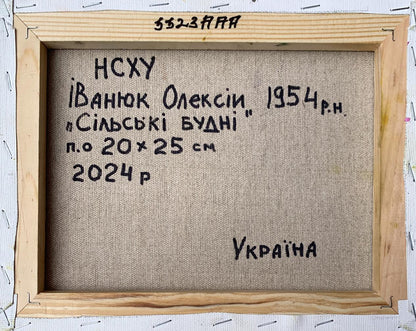 SS23AAA
НСХУ
ІВАНЮК ОЛЕКСІЙ 1954 р.н.
„СІЛЬСЬКІ БУДНІ"
п.о 20 × 25 см
2024 р
УКРАЇНА